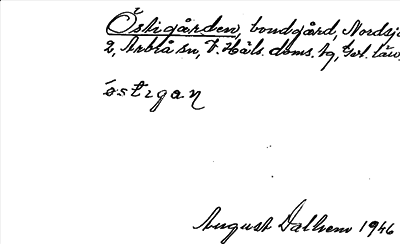 Östigården, bondgård, Nordsjö
2, Arbrå sn, V. Häls. doms. tg, Gvl. län,
östigan
August Dalhem 1946